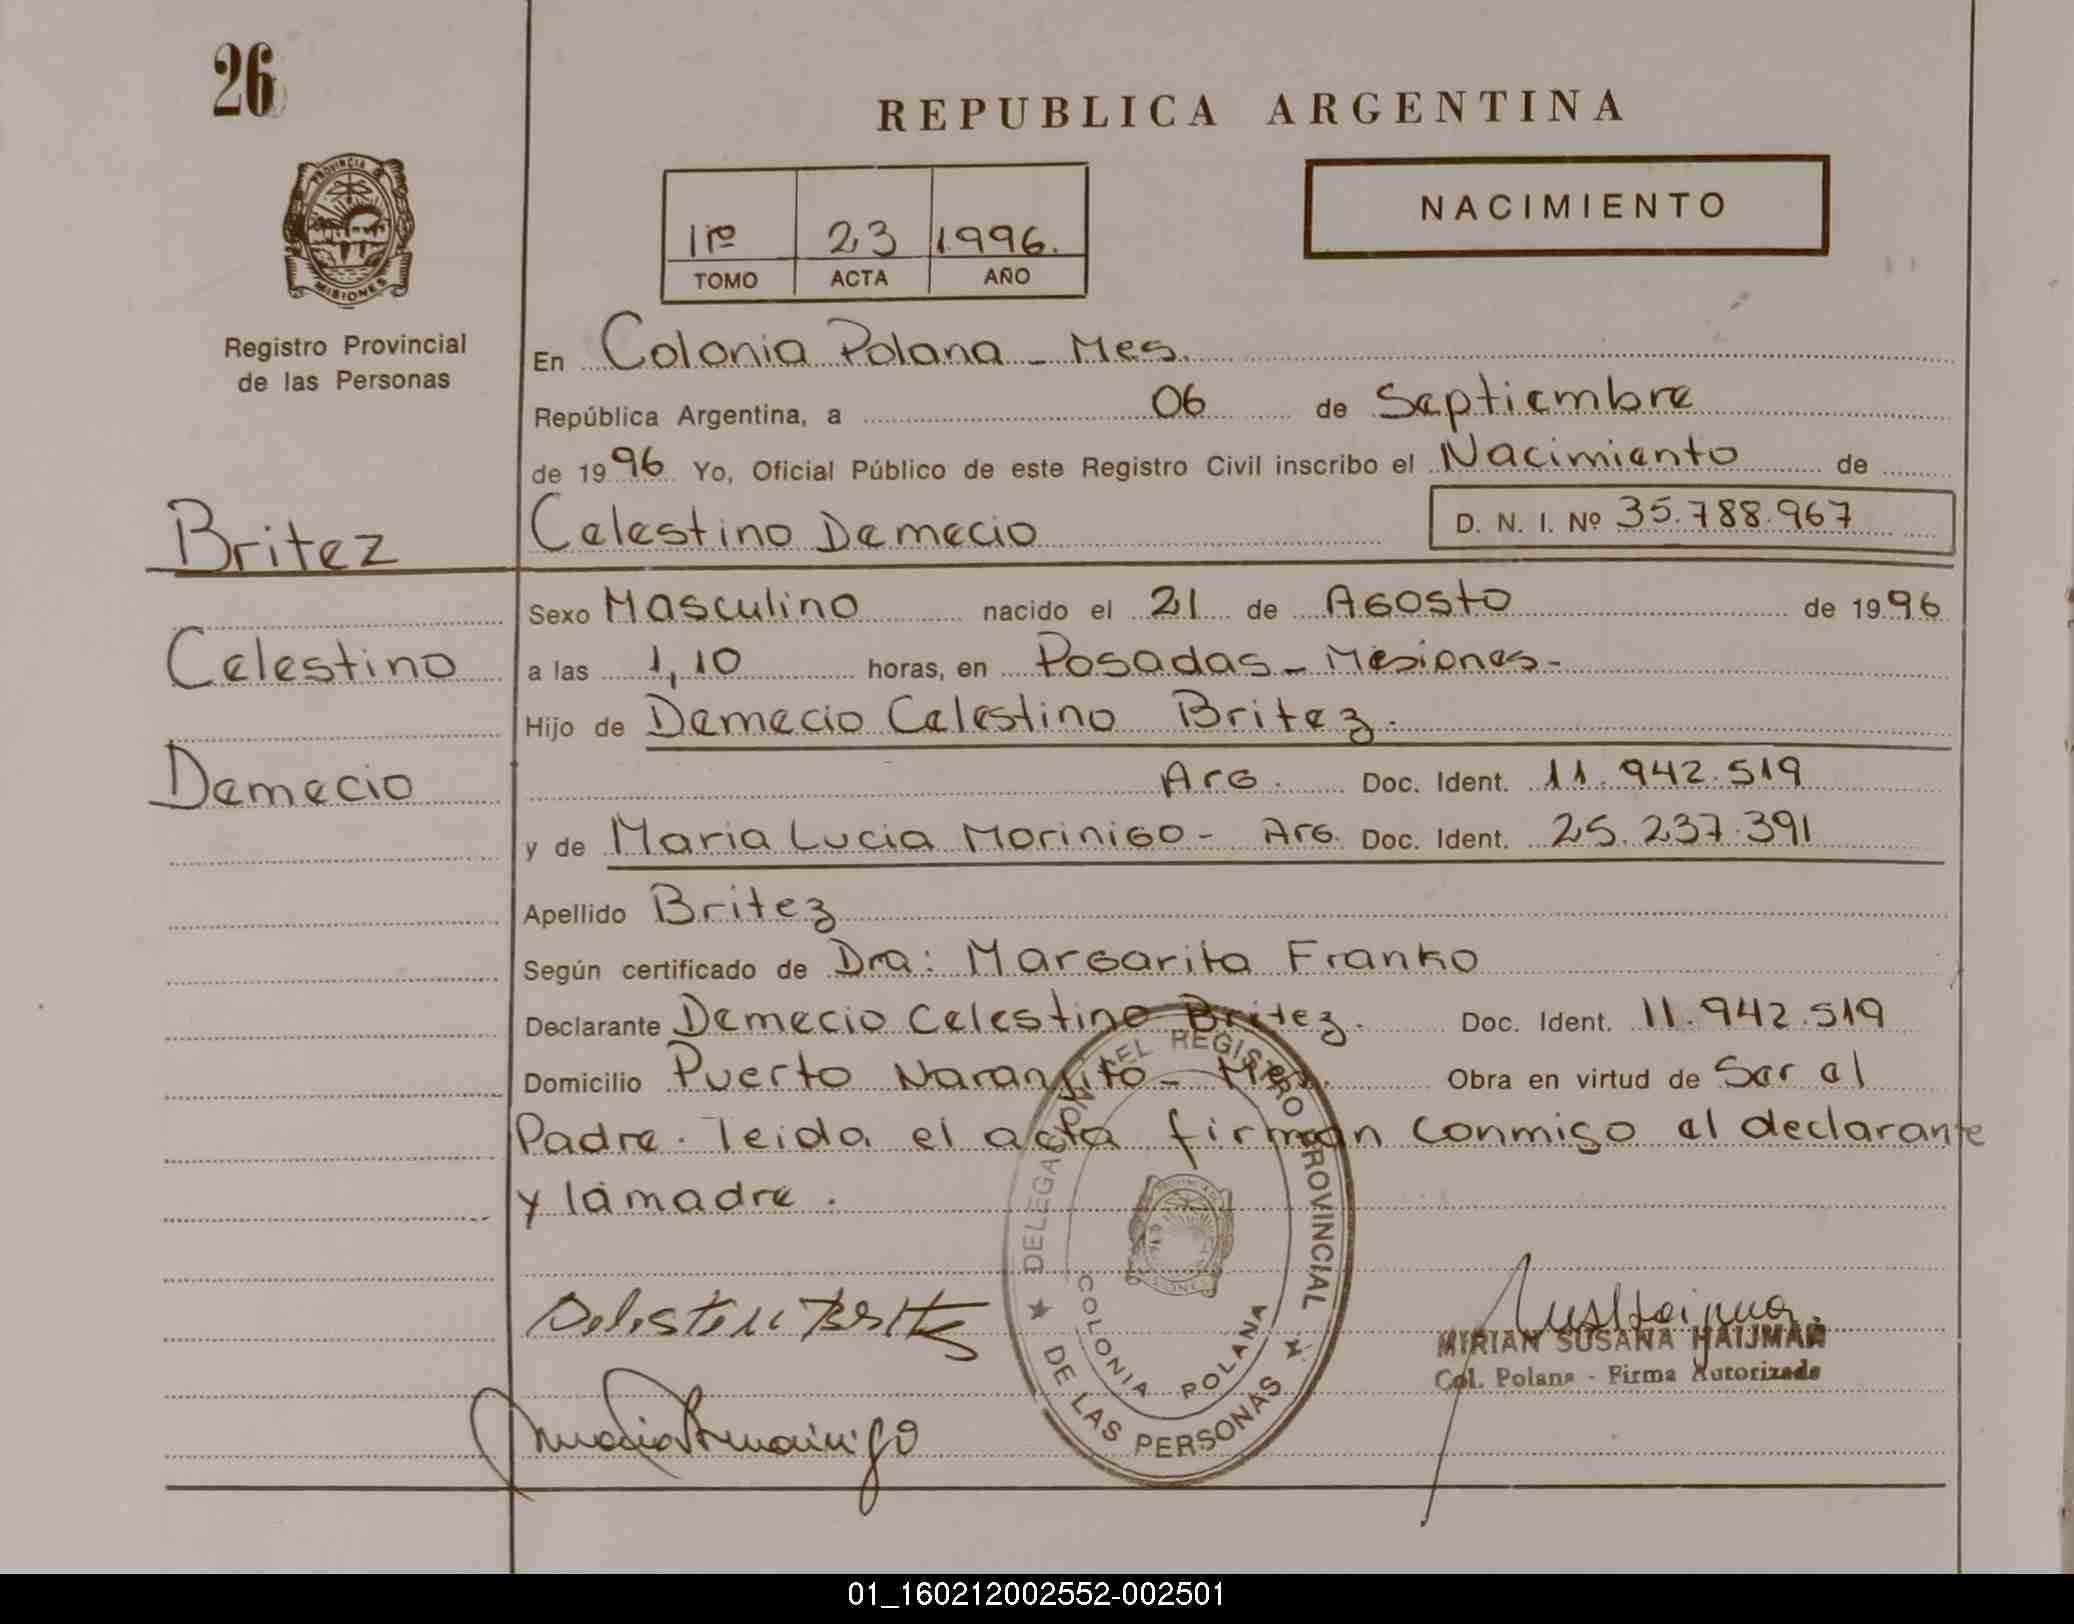 26
REPUBLICA ARGENTINA
PROVINCIA
MISIONES
Registro Provincial
de las Personas
1re 23 1996.
TOMO ACTA AÑO
NACIMIENTO
En Colonia Polana - Mes.
República Argentina, a 06 de Septiembre
de 1996 Yo, Oficial Público de este Registro Civil inscribo el Nacimiento de
Britez
Celestino Demecio D. N. I. Nº 35.788.967
Sexo Masculino nacido el 21 de Agosto de 1996
Celestino
a las 1,10 horas, en Posadas - Mesiones -
Hijo de Demecio Celestino Britez.
Demecio
Arg. Doc. Ident. 11.942.519
y de Maria Lucia Morinigo - Arg. Doc. Ident. 25.237.391
Apellido Britez
Según certificado de Dra: Margarita Franko
Declarante Demecio Celestino Britez. Doc. Ident. 11.942.519
Domicilio Puerto Naranjito - Mes. Obra en virtud de Ser el
Padre. Leida el acta firman conmigo el declarante
y la madre.
DELEGACION DEL REGISTRO PROVINCIAL
DE LAS PERSONAS
COLONIA POLANA
MIRIAN SUSANA HAIJMAN
Col. Polana - Firma Autorizada
01_160212002552-002501